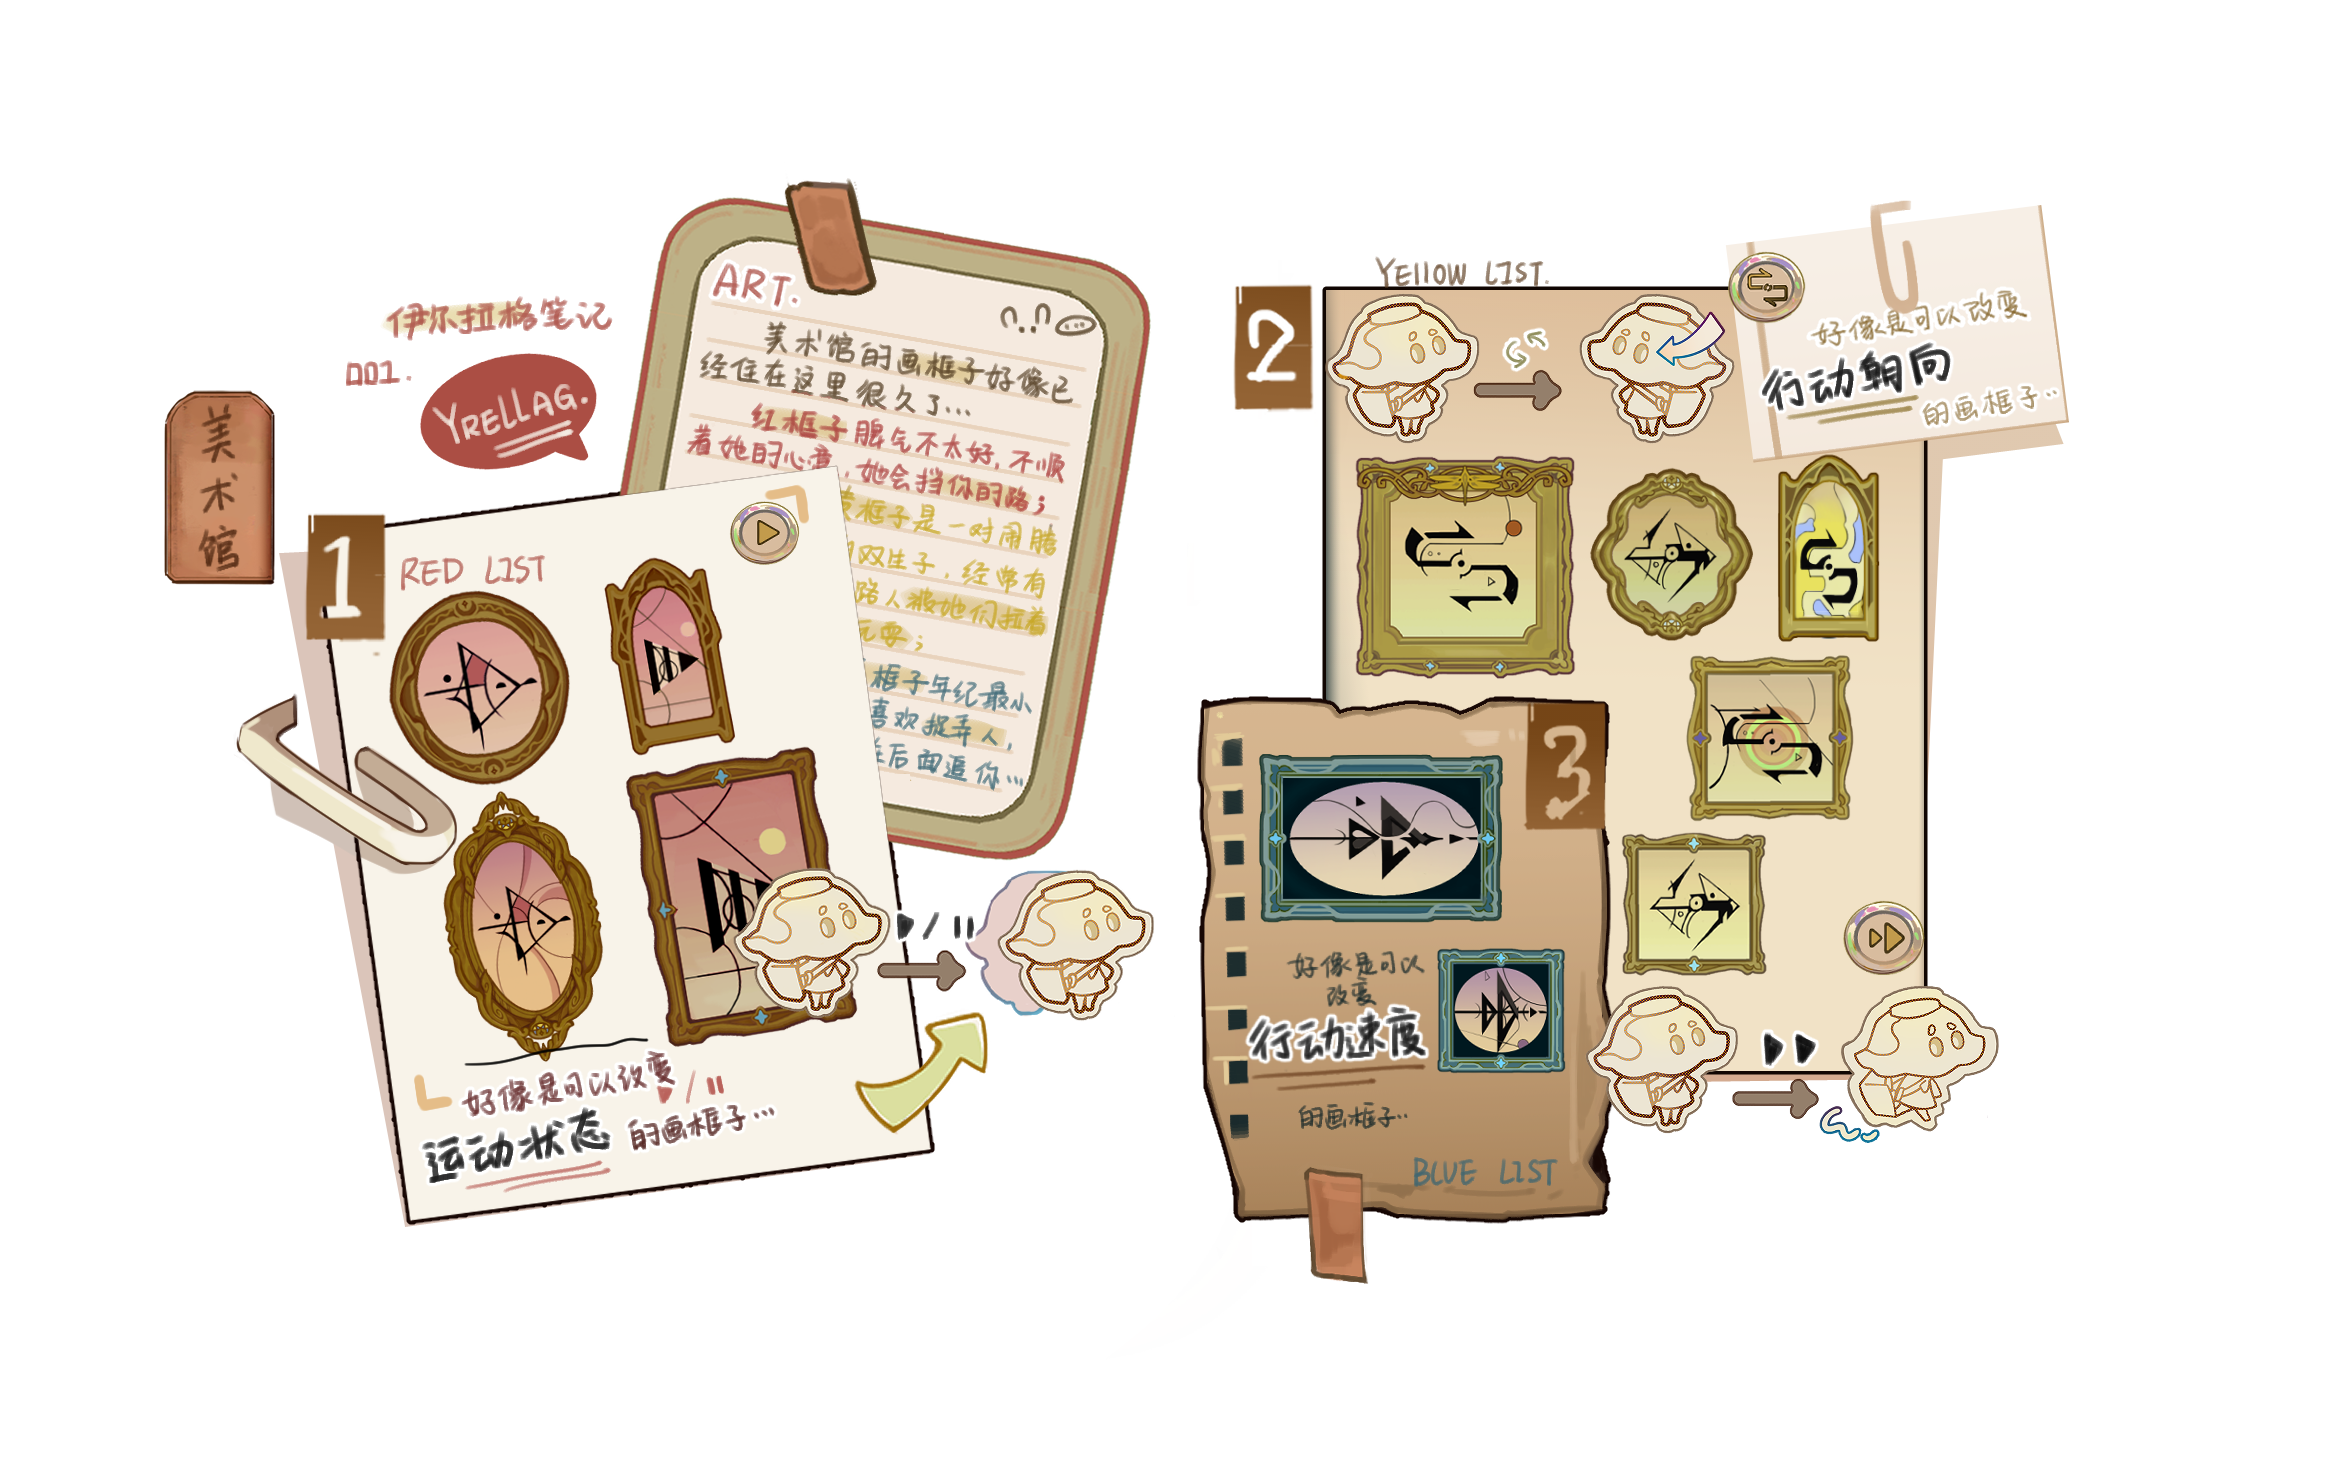 美术馆
伊尔拉格笔记
001.
YRELLAG.
ART.
美术馆的画框子好像已
经住在这里很久了...
红框子脾气不太好,不顺
着她的心意,她会挡你的路;
黄框子是一对闹腾
双生子,经常有
路人被她们拉着
玩耍;
框子年纪最小
喜欢捉弄人,
后面追你...
1
RED LIST
好像是可以改变
运动状态 的画框子...
2
YELLOW LIST.
好像是可以改变
行动朝向
的画框子..
3
好像是可以
改变
行动速度
的画框子..
BLUE LIST